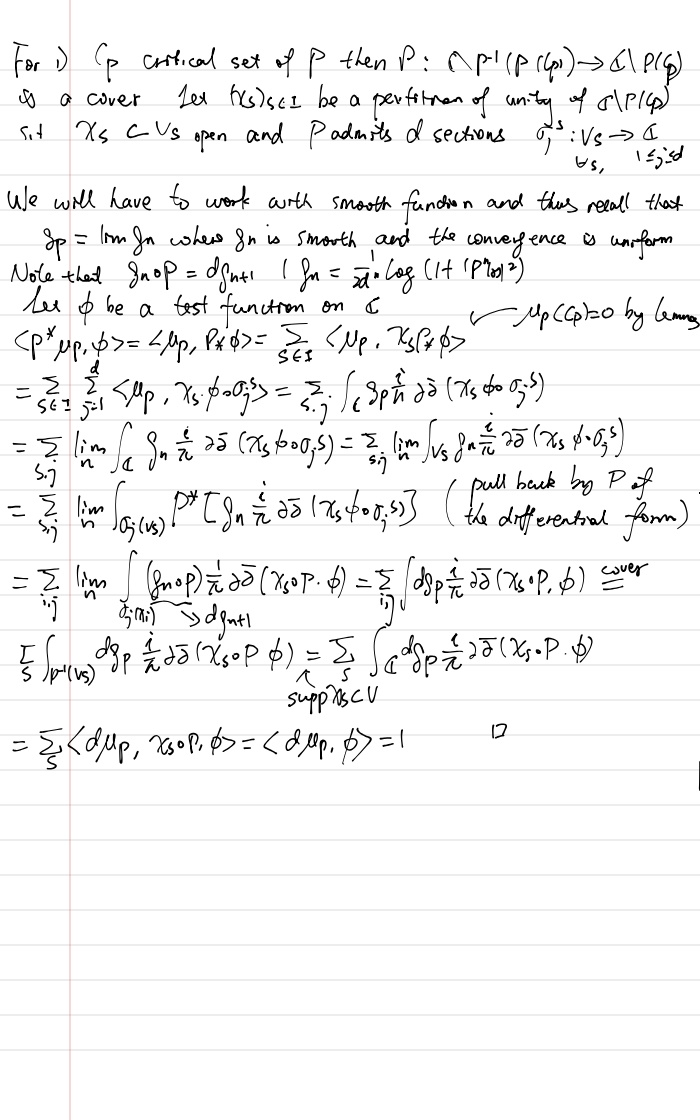 For i) C_p critical set of P then P : ℂ\P^{-1}(P(C_p)) → ℂ\P(C_p)
is a cover Let (χ_s)_{s∈I} be a partition of unity of ℂ\P(C_p)
s.t χ_s ⊂ V_s open and P admits d sections σ_j^s : V_s → ℂ
∀s, 1≤j≤d
We will have to work with smooth function and thus recall that
g_p = lim g_n where g_n is smooth and the convergence is uniform
Note that g_n∘P = d g_{n+1} ( g_n = 1/2d^n log (1+|P^n(z)|^2)
Let φ be a test function on ℂ
<P^* μ_p, φ> = <μ_p, P_* φ> = Σ_{s∈I} <μ_p, χ_s P_* φ> ↙ μ_p(C_p)=0 by lemma
= Σ_{s∈I} Σ_{j=1}^d <μ_p, χ_s·φ∘σ_j^s> = Σ_{s,j} ∫_ℂ g_p i/π ∂∂̄ (χ_s φ∘σ_j^s)
= Σ_{s,j} lim_n ∫_ℂ g_n i/π ∂∂̄ (χ_s φ∘σ_j^s) = Σ_{s,j} lim_n ∫_{V_s} g_n i/π ∂∂̄ (χ_s φ∘σ_j^s)
= Σ_{s,j} lim_n ∫_{σ_j(V_s)} P^* [g_n i/π ∂∂̄ (χ_s φ∘σ_j^s)] ( pull back by P of
the differential form )
= Σ_{i,j} lim_n ∫ (g_n∘P) i/π ∂∂̄ (χ_s∘P·φ) = Σ_{i,j} ∫ d g_p i/π ∂∂̄ (χ_s∘P, φ) =^{cover}
→ d g_{n+1}
Σ_s ∫_{P^{-1}(V_s)} d g_p i/π ∂∂̄ (χ_s∘P φ) = Σ_s ∫_ℂ d g_p i/π ∂∂̄ (χ_s∘P·φ)
↑
supp χ_s ⊂ V
= Σ_s <dμ_p, χ_s∘P, φ> = <dμ_p, φ> = 1 □